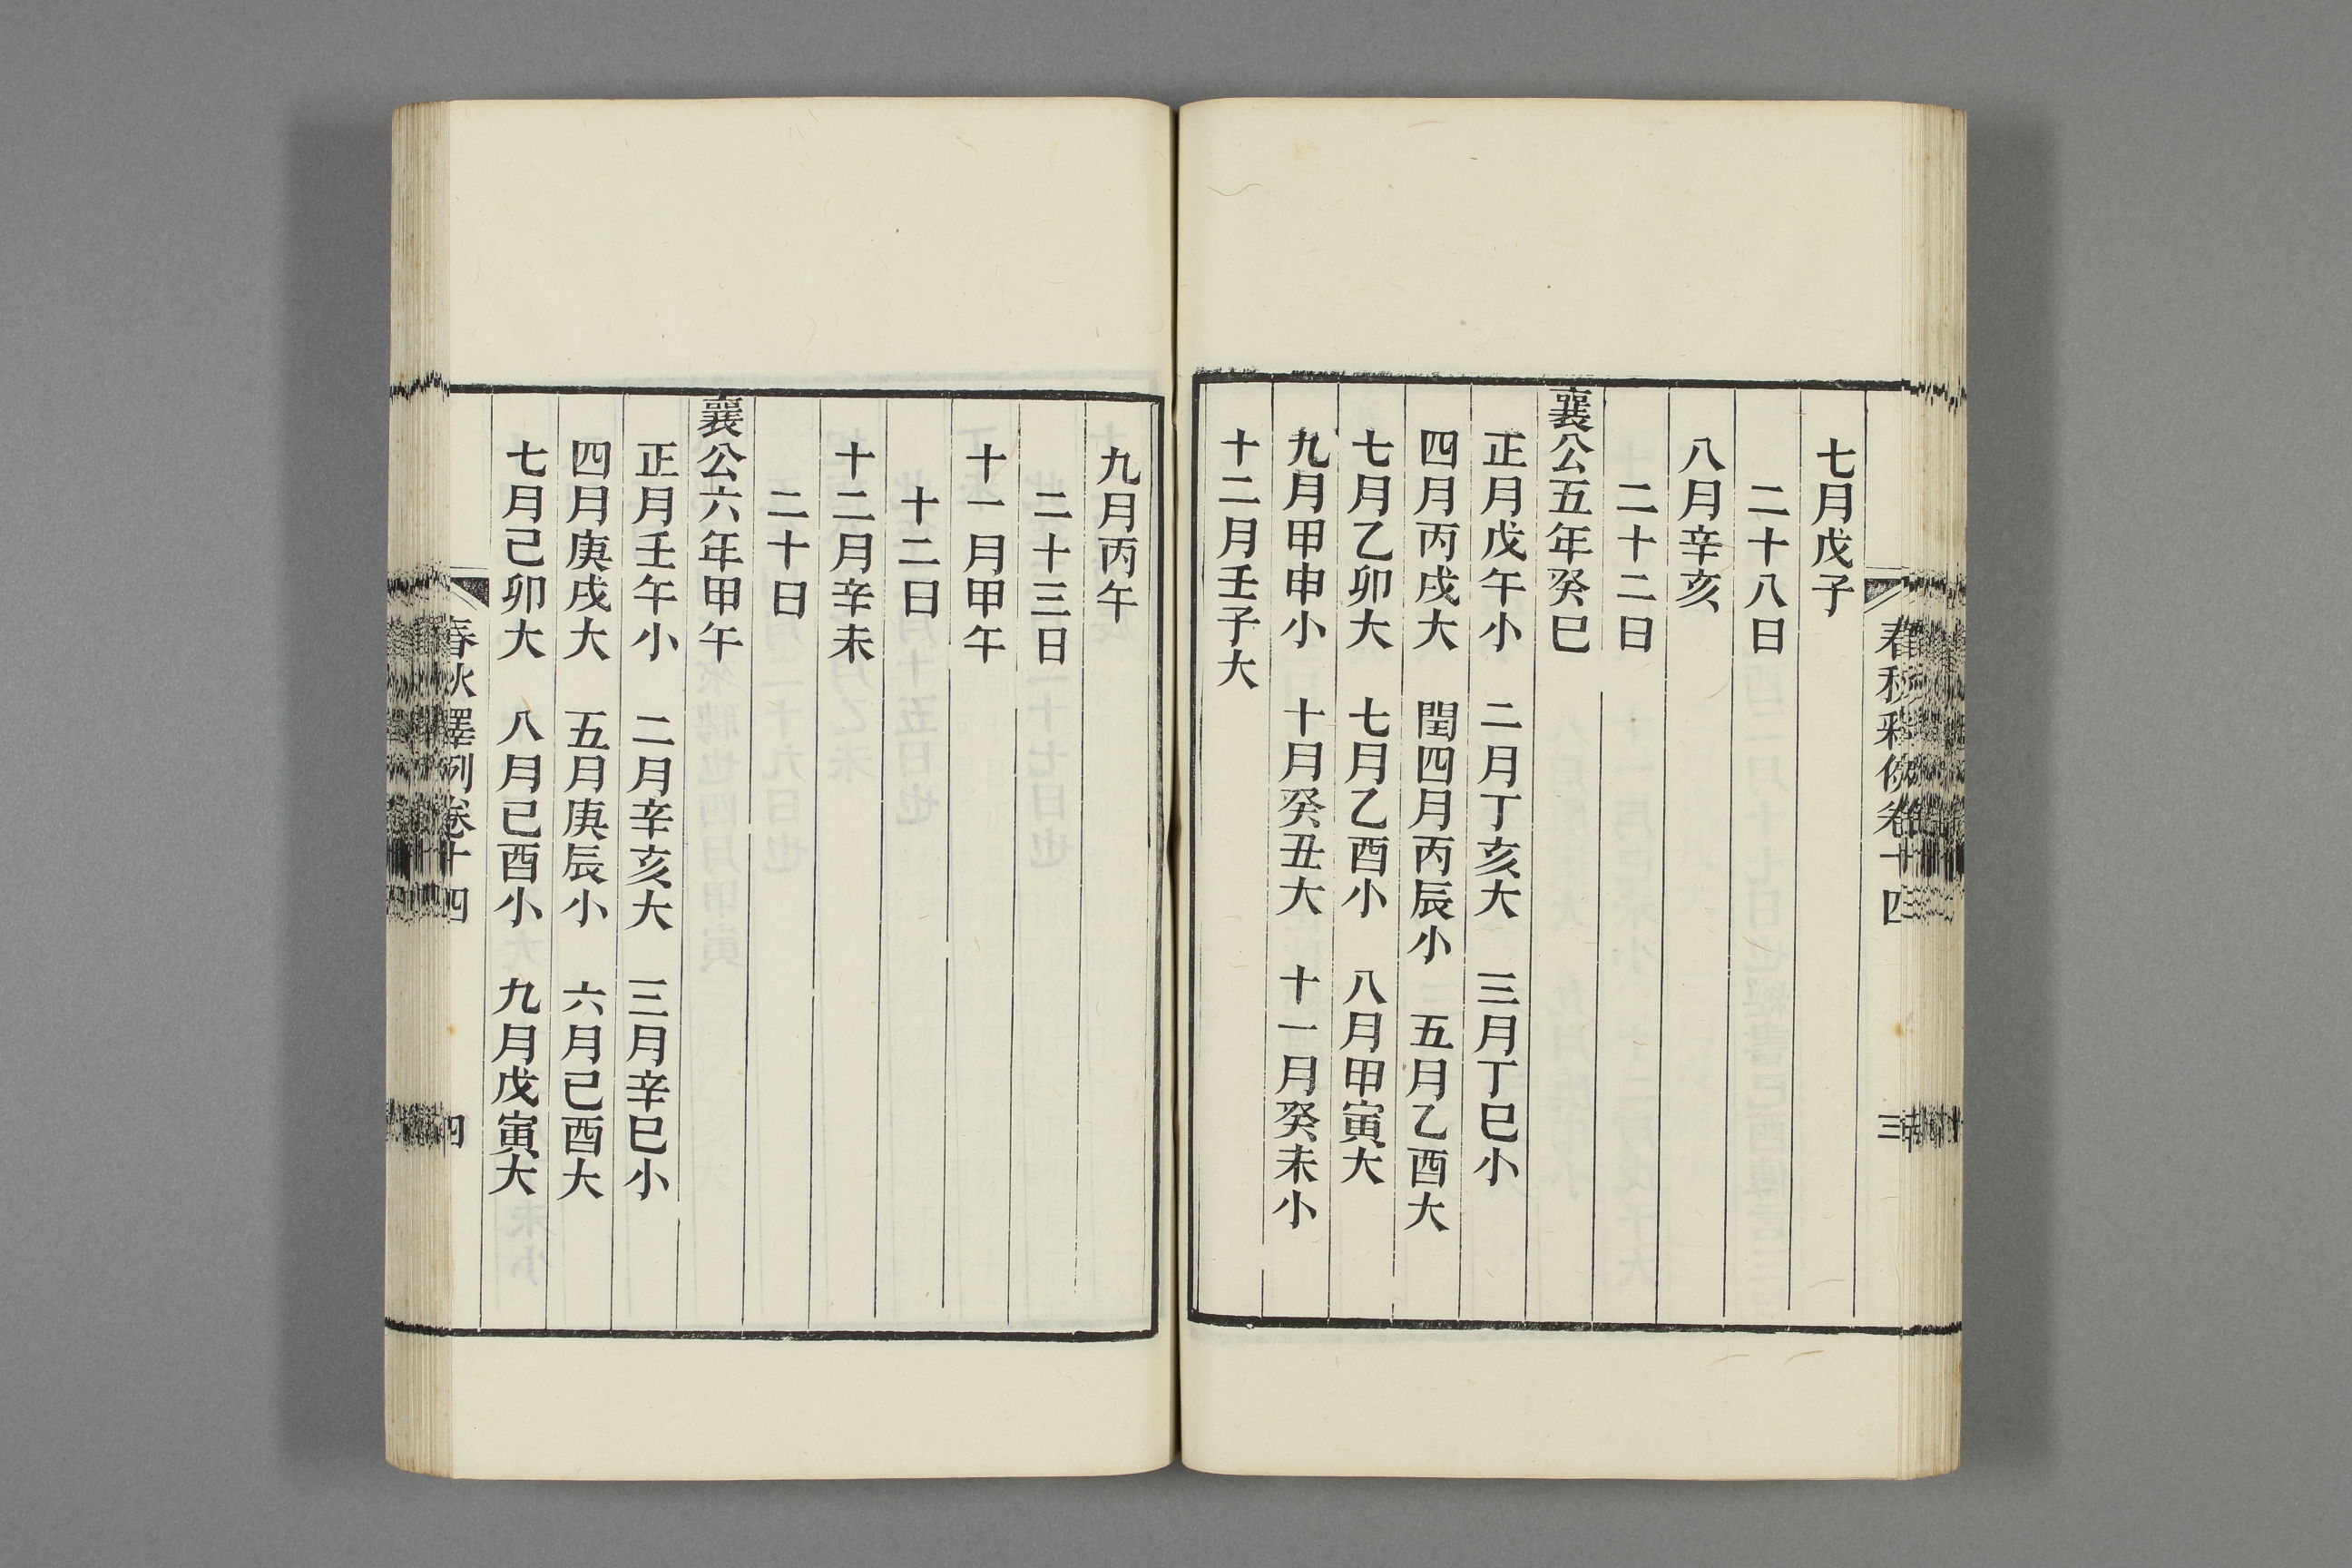 七月戊子
二十八日
八月辛亥
二十二日
襄公五年癸巳
正月戊午小 二月丁亥大 三月丁巳小
四月丙戌大 閏四月丙辰小 五月乙酉大
七月乙卯大 七月乙酉小 八月甲寅大
九月甲申小 十月癸丑大 十一月癸未小
十二月壬子大
九月丙午
二十三日
十一月甲午
十二日
十二月辛未
二十日
襄公六年甲午
正月壬午小 二月辛亥大 三月辛巳小
四月庚戌大 五月庚辰小 六月己酉大
七月己卯大 八月己酉小 九月戊寅大
春秋釋例卷十四
四